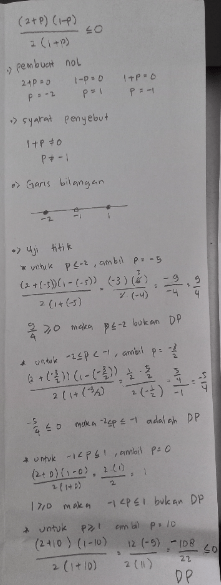 (2+p)(1-p) / 2(1+p) ≤0
•) pembuat nol
2+p=0 1-p=0 1+p=0
p=-2 p=1 p=-1
•) syarat penyebut
1+p ≠0
p≠-1
•) Garis bilangan
-2 -1 1
•) Uji titik
* untuk p≤-2, ambil p=-5
(2+(-5))(1-(-5)) / 2(1+(-5) = (-3)(6) / 2(-4) = -9/-4 = 9/4
9/4 ≥0 maka p≤-2 bukan DP
* untuk -2≤p<-1, ambil p=-3/2
(2+(-3/2))(1-(-3/2)) / 2(1+(-3/2) = 1/2 · 5/2 / 2(-1/2) = 5/4 / -1 = -5/4
-5/4 ≤0 maka -2≤p≤-1 adalah DP
* untuk -1<p≤1, ambil p=0
(2+0)(1-0) / 2(1+0) = 2(1) / 2 = 1
1≥0 maka -1<p≤1 bukan DP
* untuk p≥1 ambil p=10
(2+10)(1-10) / 2(1+10) = 12(-9) / 2(11) = -108/22 ≤0
DP